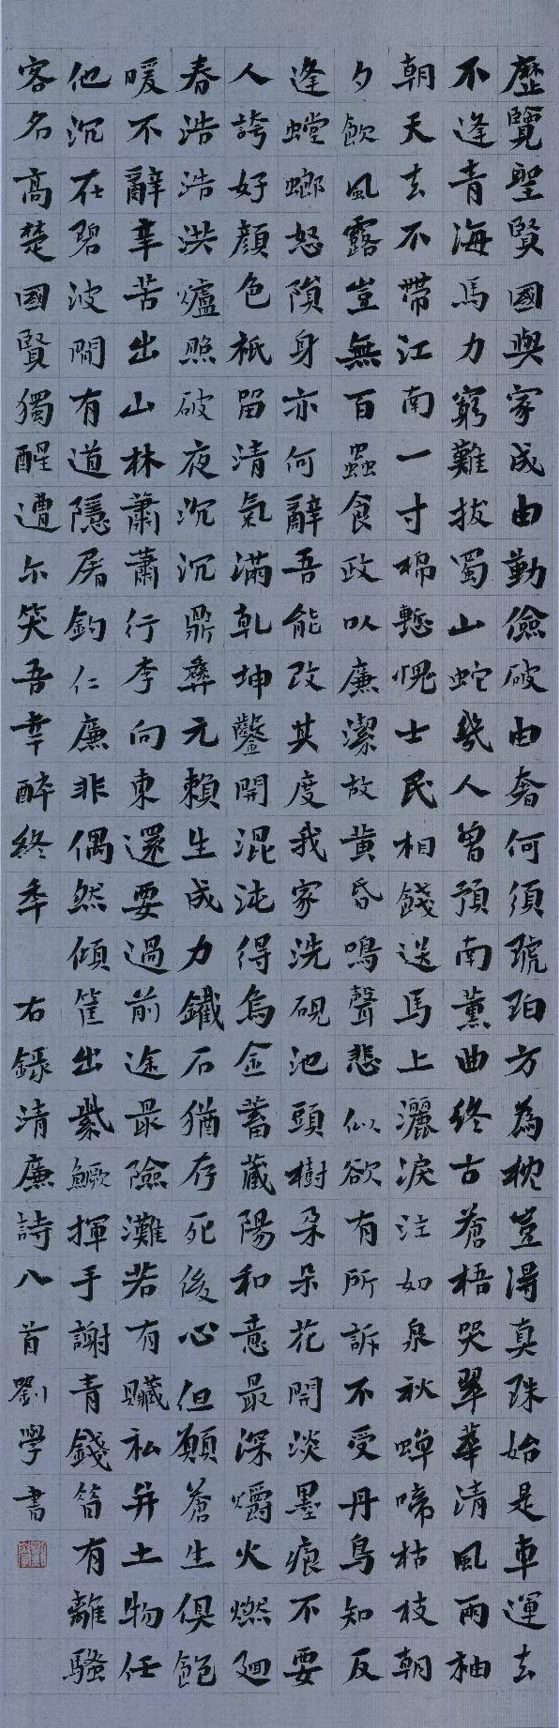 歷覽聖賢國與家成由勤儉破由奢何須琥珀方為枕豈得真珠始是車運去
不逢青海馬力窮難拔蜀山蛇幾人曾預南薰曲終古蒼梧哭翠華清風兩袖
朝天去不帶江南一寸棉慙愧士民相餞送馬上灑淚注如泉秋蟬啼枯枝朝
夕飲風露豈無百蟲食政以廉潔故黃昏鳴聲悲似欲有所訴不受丹鳥知反
逢螳螂怒隕身亦何辭吾能改其度我家洗硯池頭樹朵朵花開淡墨痕不要
人誇好顏色祇留清氣滿乾坤鑿開混沌得烏金蓄藏陽和意最深爝火燃廻
春浩浩洪爐照破夜沉沉鼎彝元賴生成力鐵石猶存死後心但願蒼生俱飽
暖不辭辛苦出山林蕭蕭行李向東還要過前途最險灘若有贓私并土物任
他沉在碧波間有道隱屠釣仁廉非偶然傾筐出紫鱖揮手謝青錢笥有離騷
客名高楚國賢獨醒遭尔笑吾幸醉終年 右錄清廉詩八首劉學書